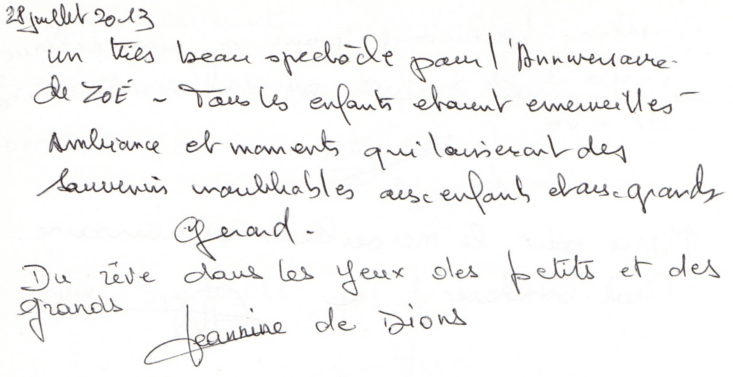 28 juillet 2013
un très beau spectacle pour l'Anniversaire.
de ZOÉ - Tous les enfants etaient emerveillés -
Ambiance et moments qui laisseront des
souvenirs inoubliables aux enfants et aux grands
Gerard -
Du rêve dans les yeux des petits et des
grands
Jeannine de Dions